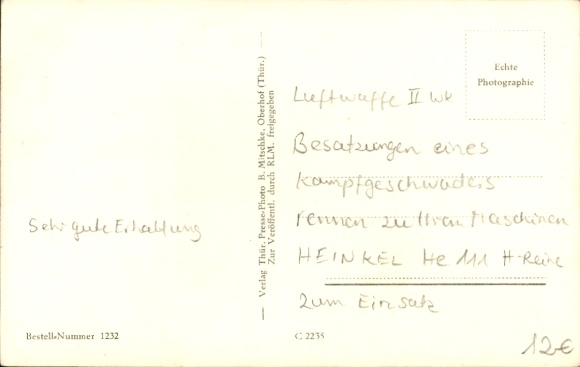 Sehr gute Erhaltung
Bestell-Nummer 1232
Verlag Thür. Presse-Photo B. Mitschke, Oberhof (Thür.)
Zur Veröffentl. durch RLM. freigegeben
Echte
Photographie
Luftwaffe II Wk
Besatzungen eines
Kampfgeschwaders
rennen zu Ihren Maschinen
HEINKEL He 111 H-Reihe
zum Einsatz
C 2235
12€